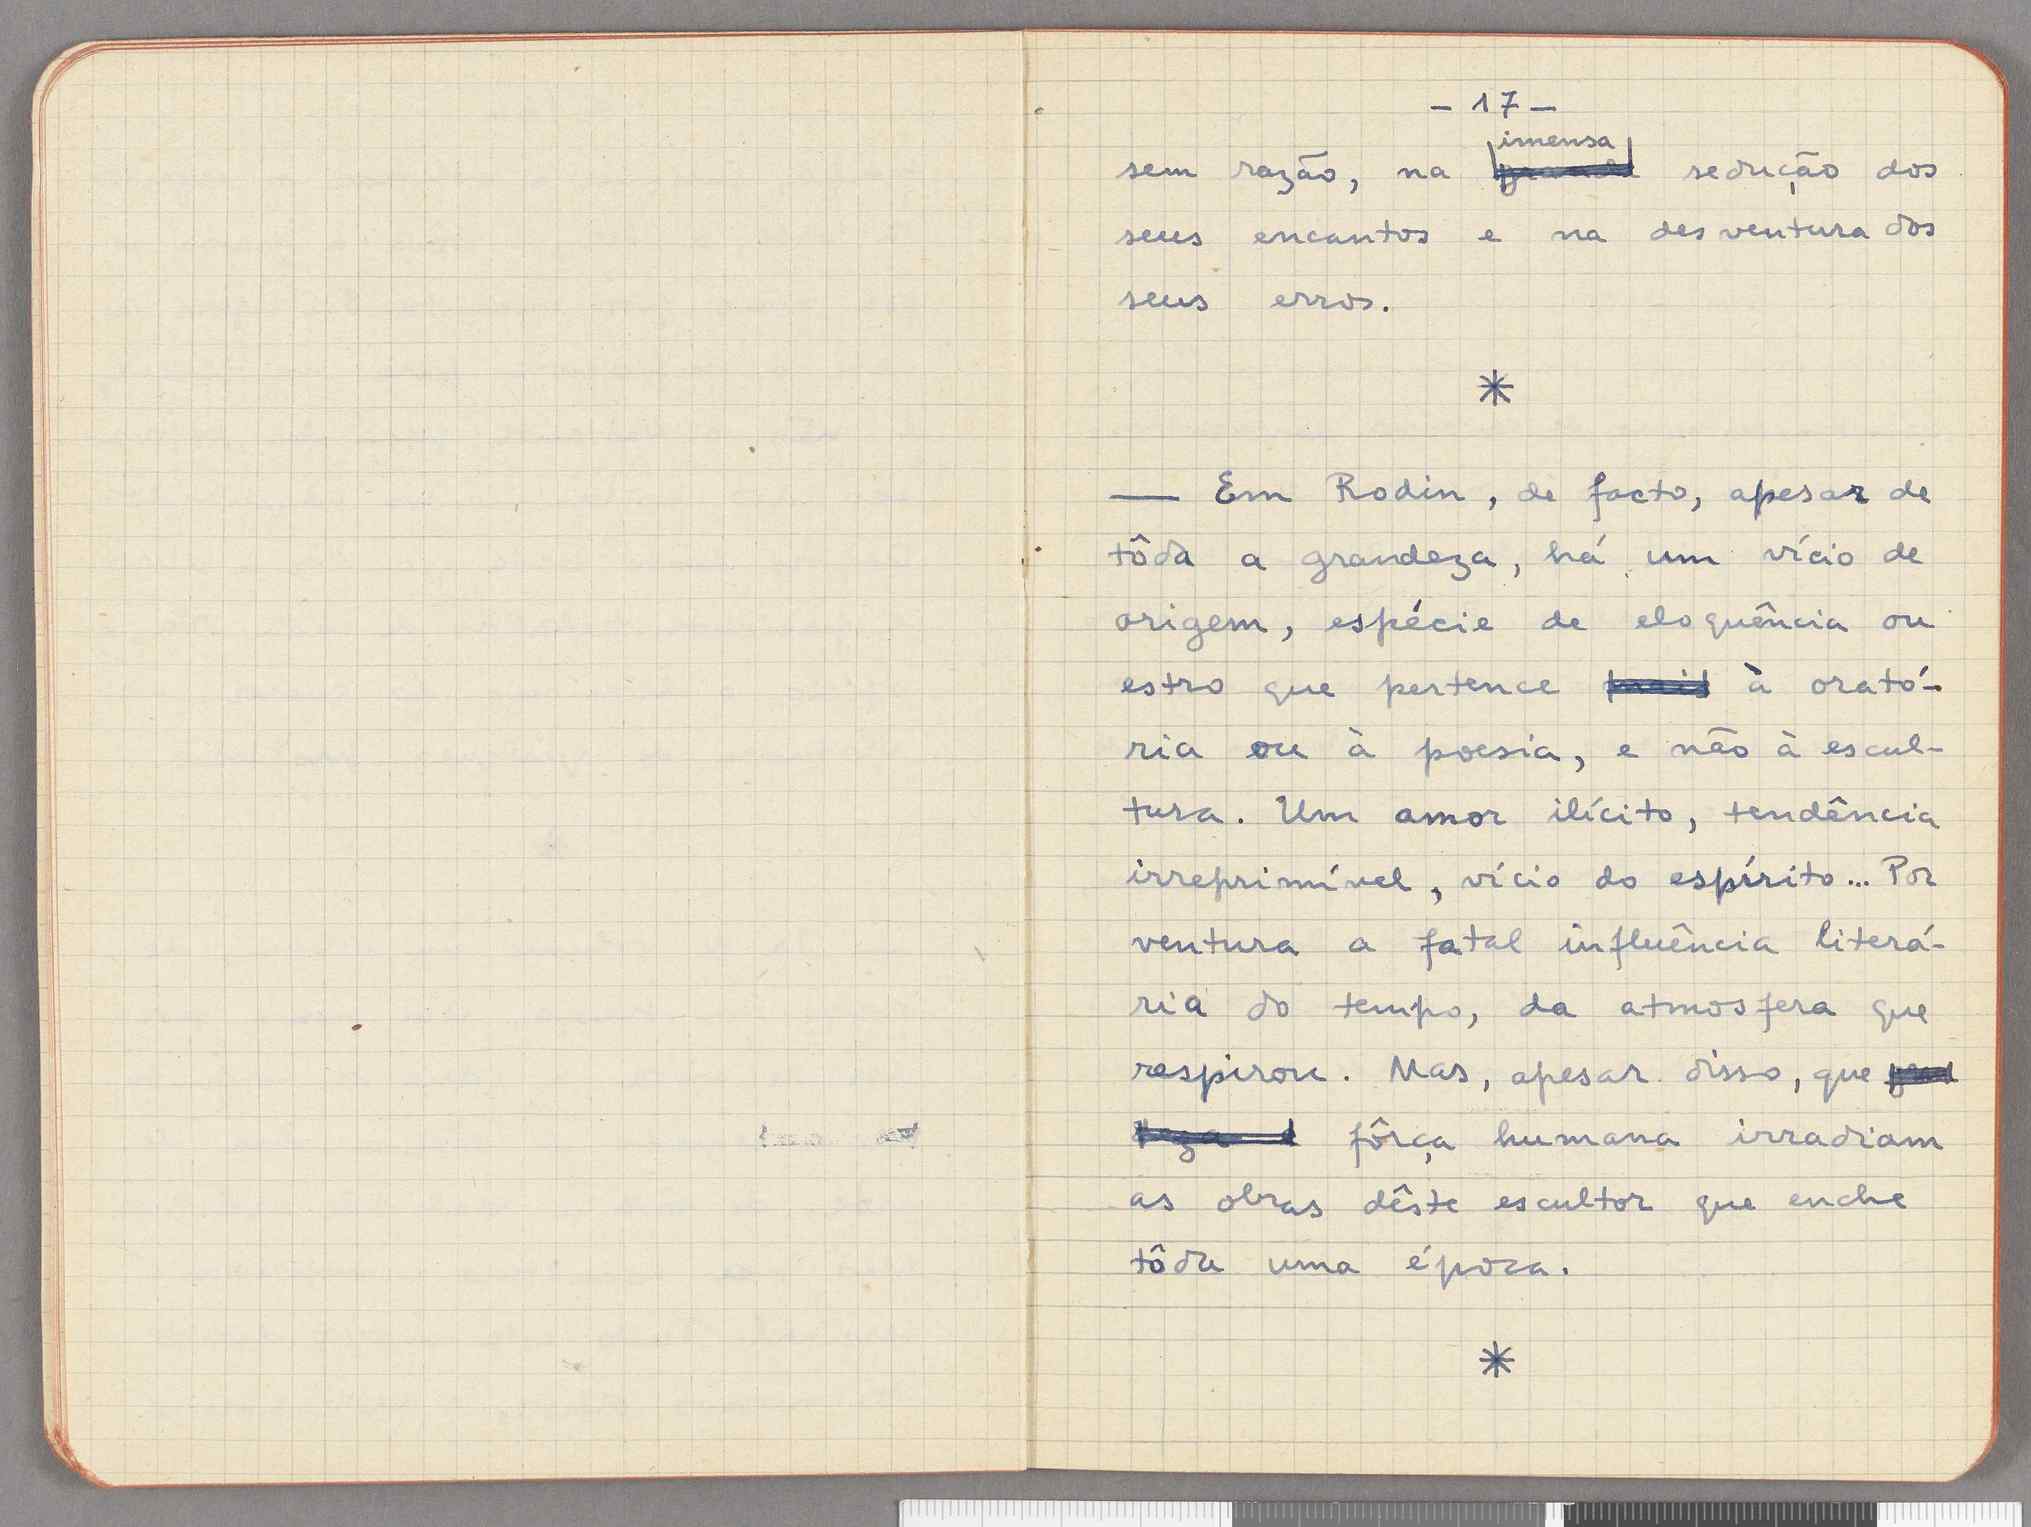 - 17 -
imensa
sem razão, na grande sedução dos
seus encantos e na desventura dos
seus erros.
*
— Em Rodin, de facto, apesar de
tôda a grandeza, há um vício de
origem, espécie de eloquência ou
estro que pertence mais à orató-
ria ou à poesia, e não à escul-
tura. Um amor ilícito, tendência
irreprimível, vício do espírito... Por
ventura a fatal influência literá-
ria do tempo, da atmosfera que
respirou. Mas, apesar disso, que
fôrça humana irradiam
as obras dêste escultor que enche
tôda uma época.
*